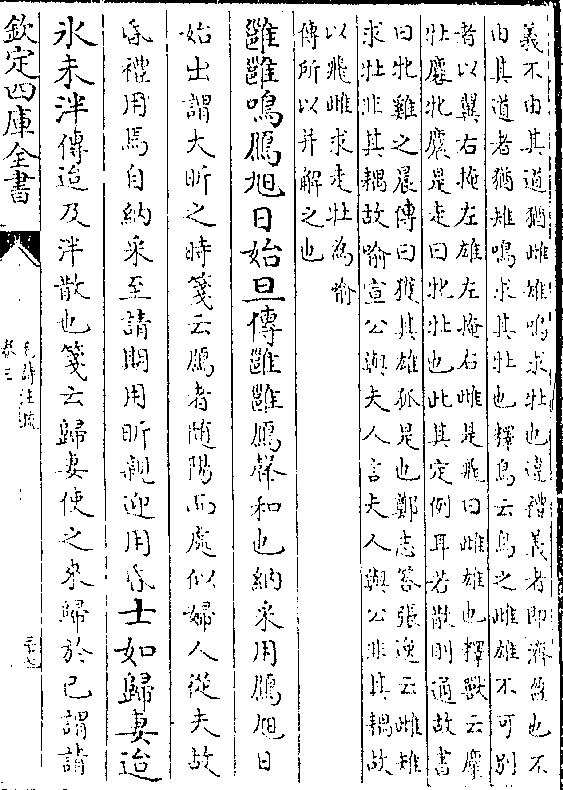 義不由其道猶雌雄鳴求牡也違禮義者即濟盈也不
由其道者猶雉鳴求其牡也釋鳥云鳥之雌雄不可別
者以翼右掩左雄左掩右雌是飛曰雌雄也釋獸云麋
牡麔牝麎是走曰牝牡也此其定例耳若散則通故書
曰牝雞之晨傳曰獲其雄狐是也鄭志答張逸云雌雉
求牡非其耦故喻宣公與夫人言夫人與公非其耦故
以飛雌求走牡為喻
傳所以并解之也
雝雝鳴鴈旭日始旦傳雝雝鴈聲和也納采用鴈旭日
始出謂大昕之時箋云鴈者隨陽而處似婦人從夫故
昏禮用焉自納采至請期用昕親迎用昏士如歸妻迨
氷未泮傳迨及泮散也箋云歸妻使之來歸於己謂請
欽定四庫全書
毛詩注疏
卷三